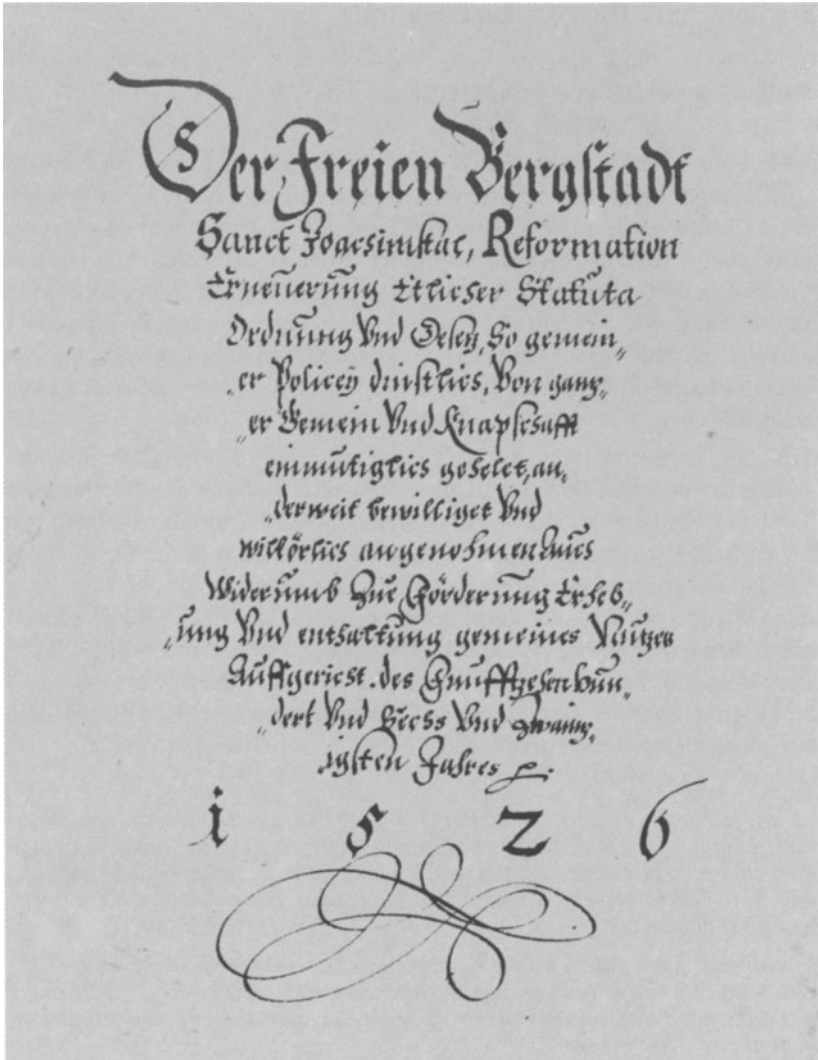 Der Freien Bergstadt
Sanct Joachimstal, Reformation
Erneüerüng Etlicher Statuta
Ordnüng Vnd Gesetz, So gemein„
„er Policeÿ dinstlich, Von gantz„
„er Gemein Vnd Knapschafft
einmütiglich gehelet, an„
„derweit bewilliget Vnd
willörlich angenohmen Auch
Widerumb Zue Förderüng Erheb„
„üng Vnd enthaltüng gemeines Nützes
Aüffgericht. des Fünfftzehenhün„
„dert Vnd Sechs Vnd Zwaintz„
„igsten Jahres
1 5 2 6